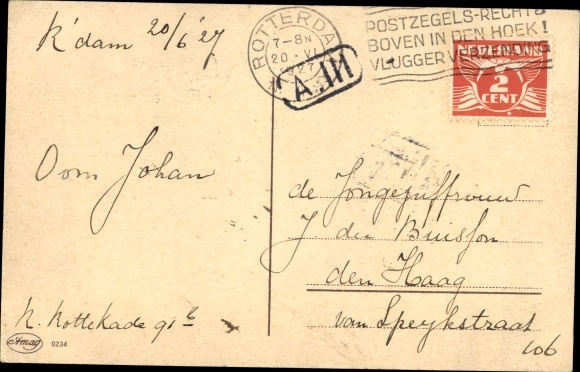 R'dam 20/6 '27
Oom Johan
R. Kottekade 91 b
Amag 0234
ROTTERDAM
7-8N
20 VI
1927
POSTZEGELS-RECHTS
BOVEN IN DEN HOEK!
VLUGGER VERZENDING
NEDERLAND
2
CENT
de Jongejuffrouw
J du Buisson
den Haag
van Speykstraat
106